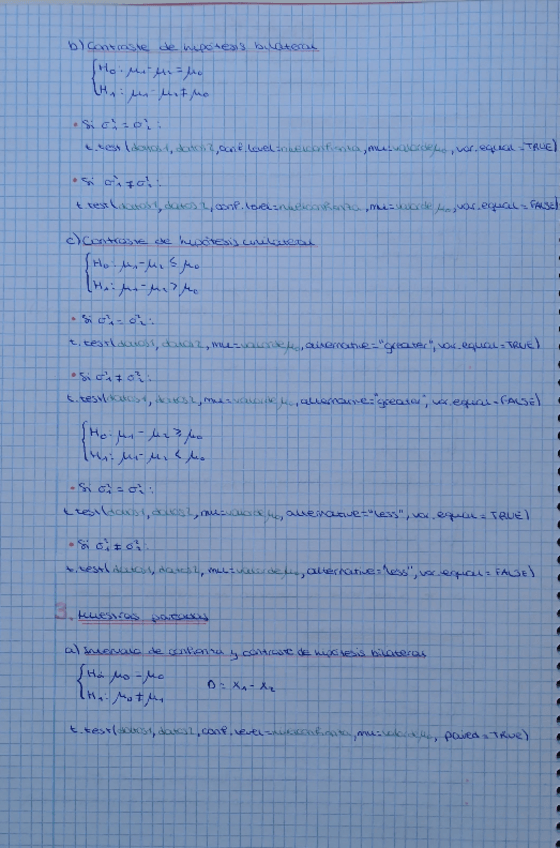 b) Contraste de hipótesis bilateral
H₀: μ₁ - μ₂ = μ₀
H₁: μ₁ - μ₂ ≠ μ₀
• Si σ²₁ = σ²₂:
t.test(datos1, datos2, conf.level=nivelconfianza, mu=valorde μ₀, var.equal=TRUE)
• Si σ²₁ ≠ σ²₂:
t.test(datos1, datos2, conf.level=nivelconfianza, mu=valorde μ₀, var.equal=FALSE)
c) Contraste de hipótesis unilateral
H₀: μ₁ - μ₂ ≤ μ₀
H₁: μ₁ - μ₂ > μ₀
• Si σ²₁ = σ²₂:
t.test(datos1, datos2, mu=valorde μ₀, alternative="greater", var.equal=TRUE)
• Si σ²₁ ≠ σ²₂:
t.test(datos1, datos2, mu=valorde μ₀, alternative="greater", var.equal=FALSE)
H₀: μ₁ - μ₂ ≥ μ₀
H₁: μ₁ - μ₂ < μ₀
• Si σ²₁ = σ²₂:
t.test(datos1, datos2, mu=valorde μ₀, alternative="less", var.equal=TRUE)
• Si σ²₁ ≠ σ²₂:
t.test(datos1, datos2, mu=valorde μ₀, alternative="less", var.equal=FALSE)
3. Muestras pareadas
a) Intervalo de confianza y contraste de hipótesis bilateral
μ₀ = μ₀
H₁: μ₀ ≠ μ₁ D = X₁ - X₂
t.test(datos1, datos2, conf.level=nivelconfianza, mu=valorde μ₀, paired=TRUE)